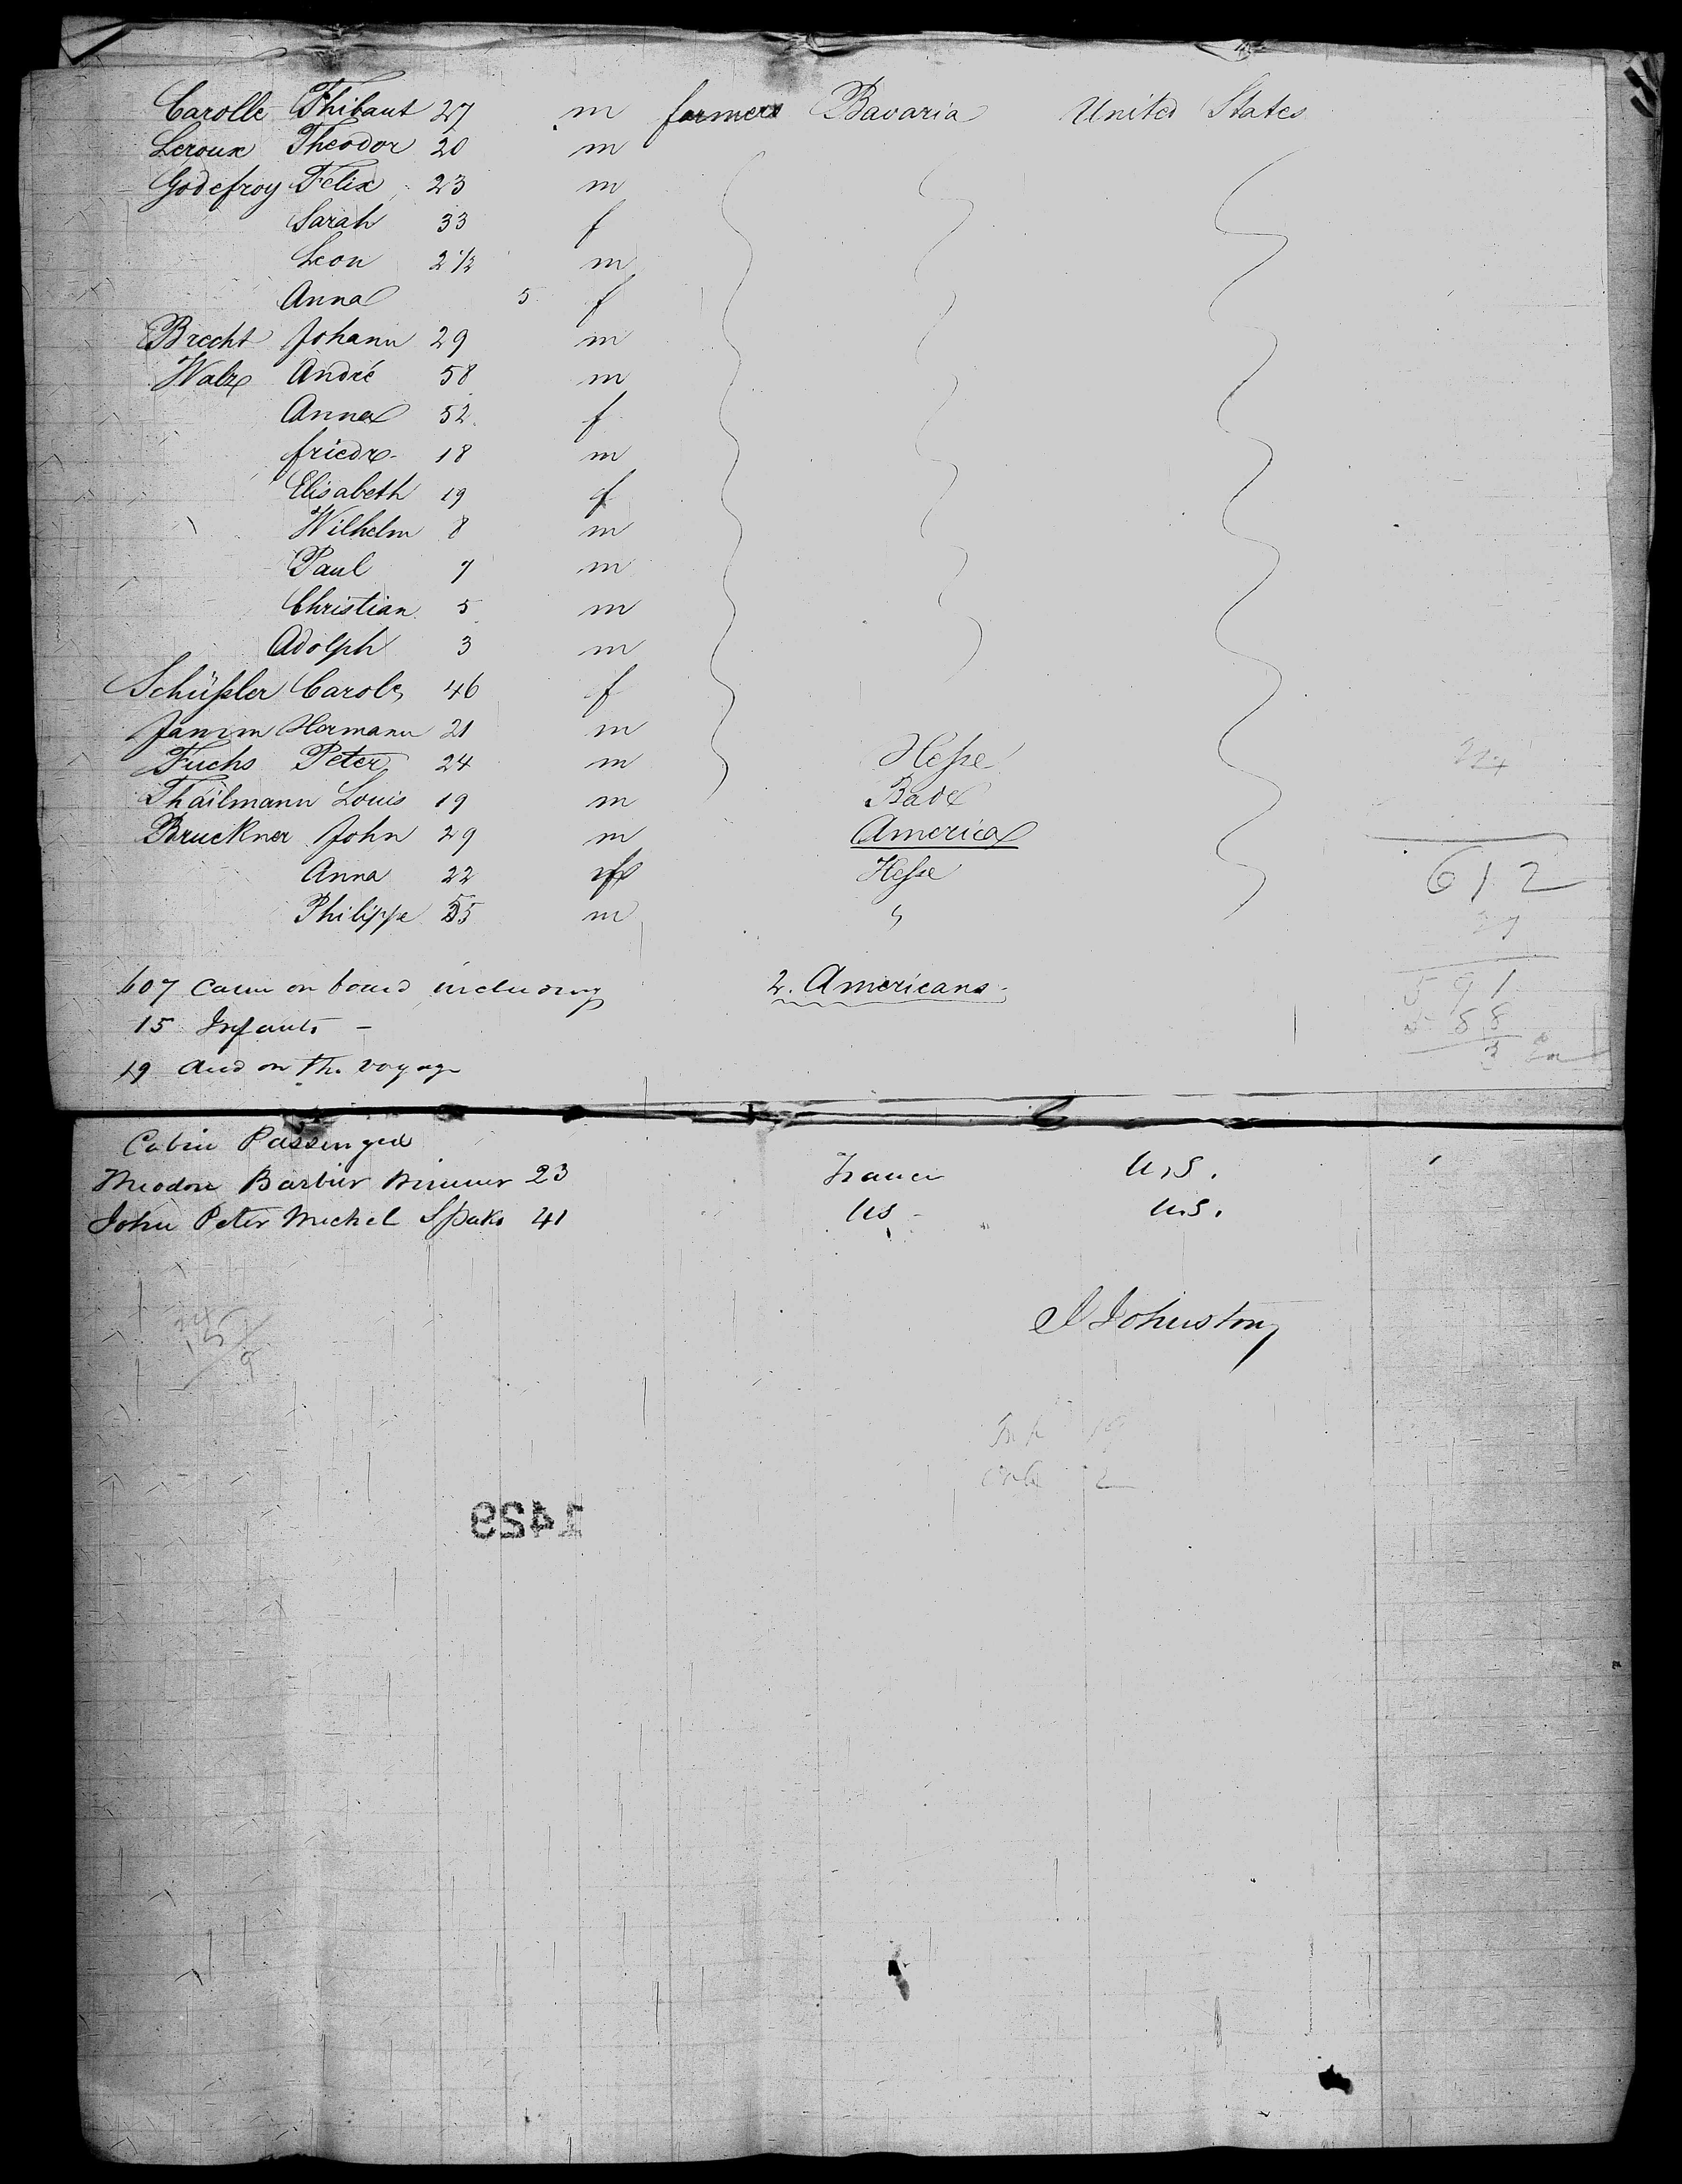 Carolle Thibaut 27 m farmers Bavaria United States
Leroux Theodor 20 m
Godefroy Felix 23 m
Sarah 33 f
Leon 2 1/2 m
Anna 5 f
Brecht Johann 29 m
Walz André 58 m
Anna 52 f
friedr. 18 m
Elisabeth 19 f
Wilhelm 8 m
Paul 7 m
Christian 5 m
Adolph 3 m
Schüßler Carol. 46 f
Hermann 21 m
Fuchs Peter 24 m Hesse
Thailmann Louis 19 m Bade
Bruckner John 29 m America
Anna 22 f Hesse 612
Philippe 55 m "
607 came on board including 2. Americans 591
15 Infants - 588
19 died on the voyage 3
Cabin Passenger
Theodore Barbier 23 France U.S.
John Peter Michel 41 US - U.S.
Johnston
Inf 19
2
1459